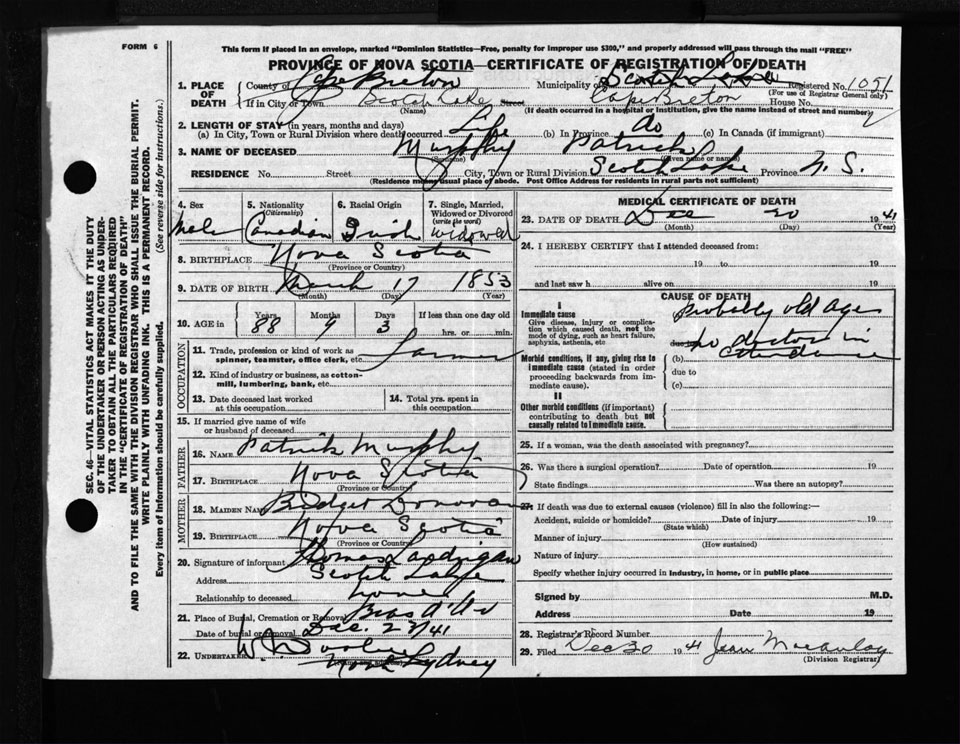 FORM 6
This form if placed in an envelope, marked "Dominion Statistics—Free, penalty for improper use $300," and properly addressed will pass through the mail "FREE"
PROVINCE OF NOVA SCOTIA—CERTIFICATE OF REGISTRATION OF DEATH
1. PLACE OF DEATH
County of Cape Breton Municipality of Scotch Lake Registered No. 1051
(For use of Registrar General only)
If in City or Town Scotch Lake Street Cape Breton House No.
(Name) (If death occurred in a hospital or institution, give the name instead of street and number)
2. LENGTH OF STAY (in years, months and days)
(a) In City, Town or Rural Division where death occurred Life (b) In Province do (c) In Canada (if immigrant)
3. NAME OF DECEASED Murphy Patrick
(Surname) (Given name or names)
RESIDENCE No. Street City, Town or Rural Division Scotch Lake Province N. S.
(Residence means usual place of abode. Post Office Address for residents in rural parts not sufficient)
4. Sex Male
5. Nationality (Citizenship) Canadian
6. Racial Origin Irish
7. Single, Married, Widowed or Divorced (write the word) Widowed
8. BIRTHPLACE Nova Scotia
(Province or Country)
9. DATE OF BIRTH March 17 1853
(Month) (Day) (Year)
10. AGE in Years Months Days If less than one day old
88 9 3 hrs. or min.
OCCUPATION
11. Trade, profession or kind of work as spinner, teamster, office clerk, etc. Farmer
12. Kind of industry or business, as cotton-mill, lumbering, bank, etc.
13. Date deceased last worked at this occupation
14. Total yrs. spent in this occupation
15. If married give name of wife or husband of deceased
FATHER
16. NAME Patrick Murphy
17. BIRTHPLACE Nova Scotia
(Province or Country)
MOTHER
18. MAIDEN NAME Bridget Donovan
19. BIRTHPLACE Nova Scotia
(Province or Country)
20. Signature of informant Thomas
Address Scotch Lake
Relationship to deceased
21. Place of Burial, Cremation or Removal Bras d'Or
Date of burial or removal Dec. 22/41
22. UNDERTAKER
North Sydney
MEDICAL CERTIFICATE OF DEATH
23. DATE OF DEATH Dec 20 1941
(Month) (Day) (Year)
24. I HEREBY CERTIFY that I attended deceased from:
19 to 19
and last saw h alive on 19
CAUSE OF DEATH
I
Immediate cause
Give disease, injury or complication which caused death, not the mode of dying, such as heart failure, asphyxia, asthenia, etc
probably old age
due to no doctor in
attendance
Morbid conditions, if any, giving rise to immediate cause (stated in order proceeding backwards from immediate cause).
(b)
due to
(c)
II
Other morbid conditions (if important) contributing to death but not causally related to immediate cause.
25. If a woman, was the death associated with pregnancy?
26. Was there a surgical operation? Date of operation 19
State findings Was there an autopsy?
27. If death was due to external causes (violence) fill in also the following:—
Accident, suicide or homicide? Date of injury 19
(State which)
Manner of injury
(How sustained)
Nature of injury
Specify whether injury occurred in industry, in home, or in public place
Signed by M.D.
Address Date 19
28. Registrar's Record Number
29. Filed Dec 30 1941 Jean Macaulay
(Division Registrar)
SEC. 46—VITAL STATISTICS ACT MAKES IT THE DUTY
OF THE UNDERTAKER OR PERSON ACTING AS UNDER-
TAKER TO OBTAIN ALL THE PARTICULARS REQUIRED
IN THE "CERTIFICATE OF REGISTRATION OF DEATH"
AND TO FILE THE SAME WITH THE DIVISION REGISTRAR WHO SHALL ISSUE THE BURIAL PERMIT.
WRITE PLAINLY WITH UNFADING INK. THIS IS A PERMANENT RECORD.
Every item of Information should be carefully supplied. (See reverse side for instructions.)